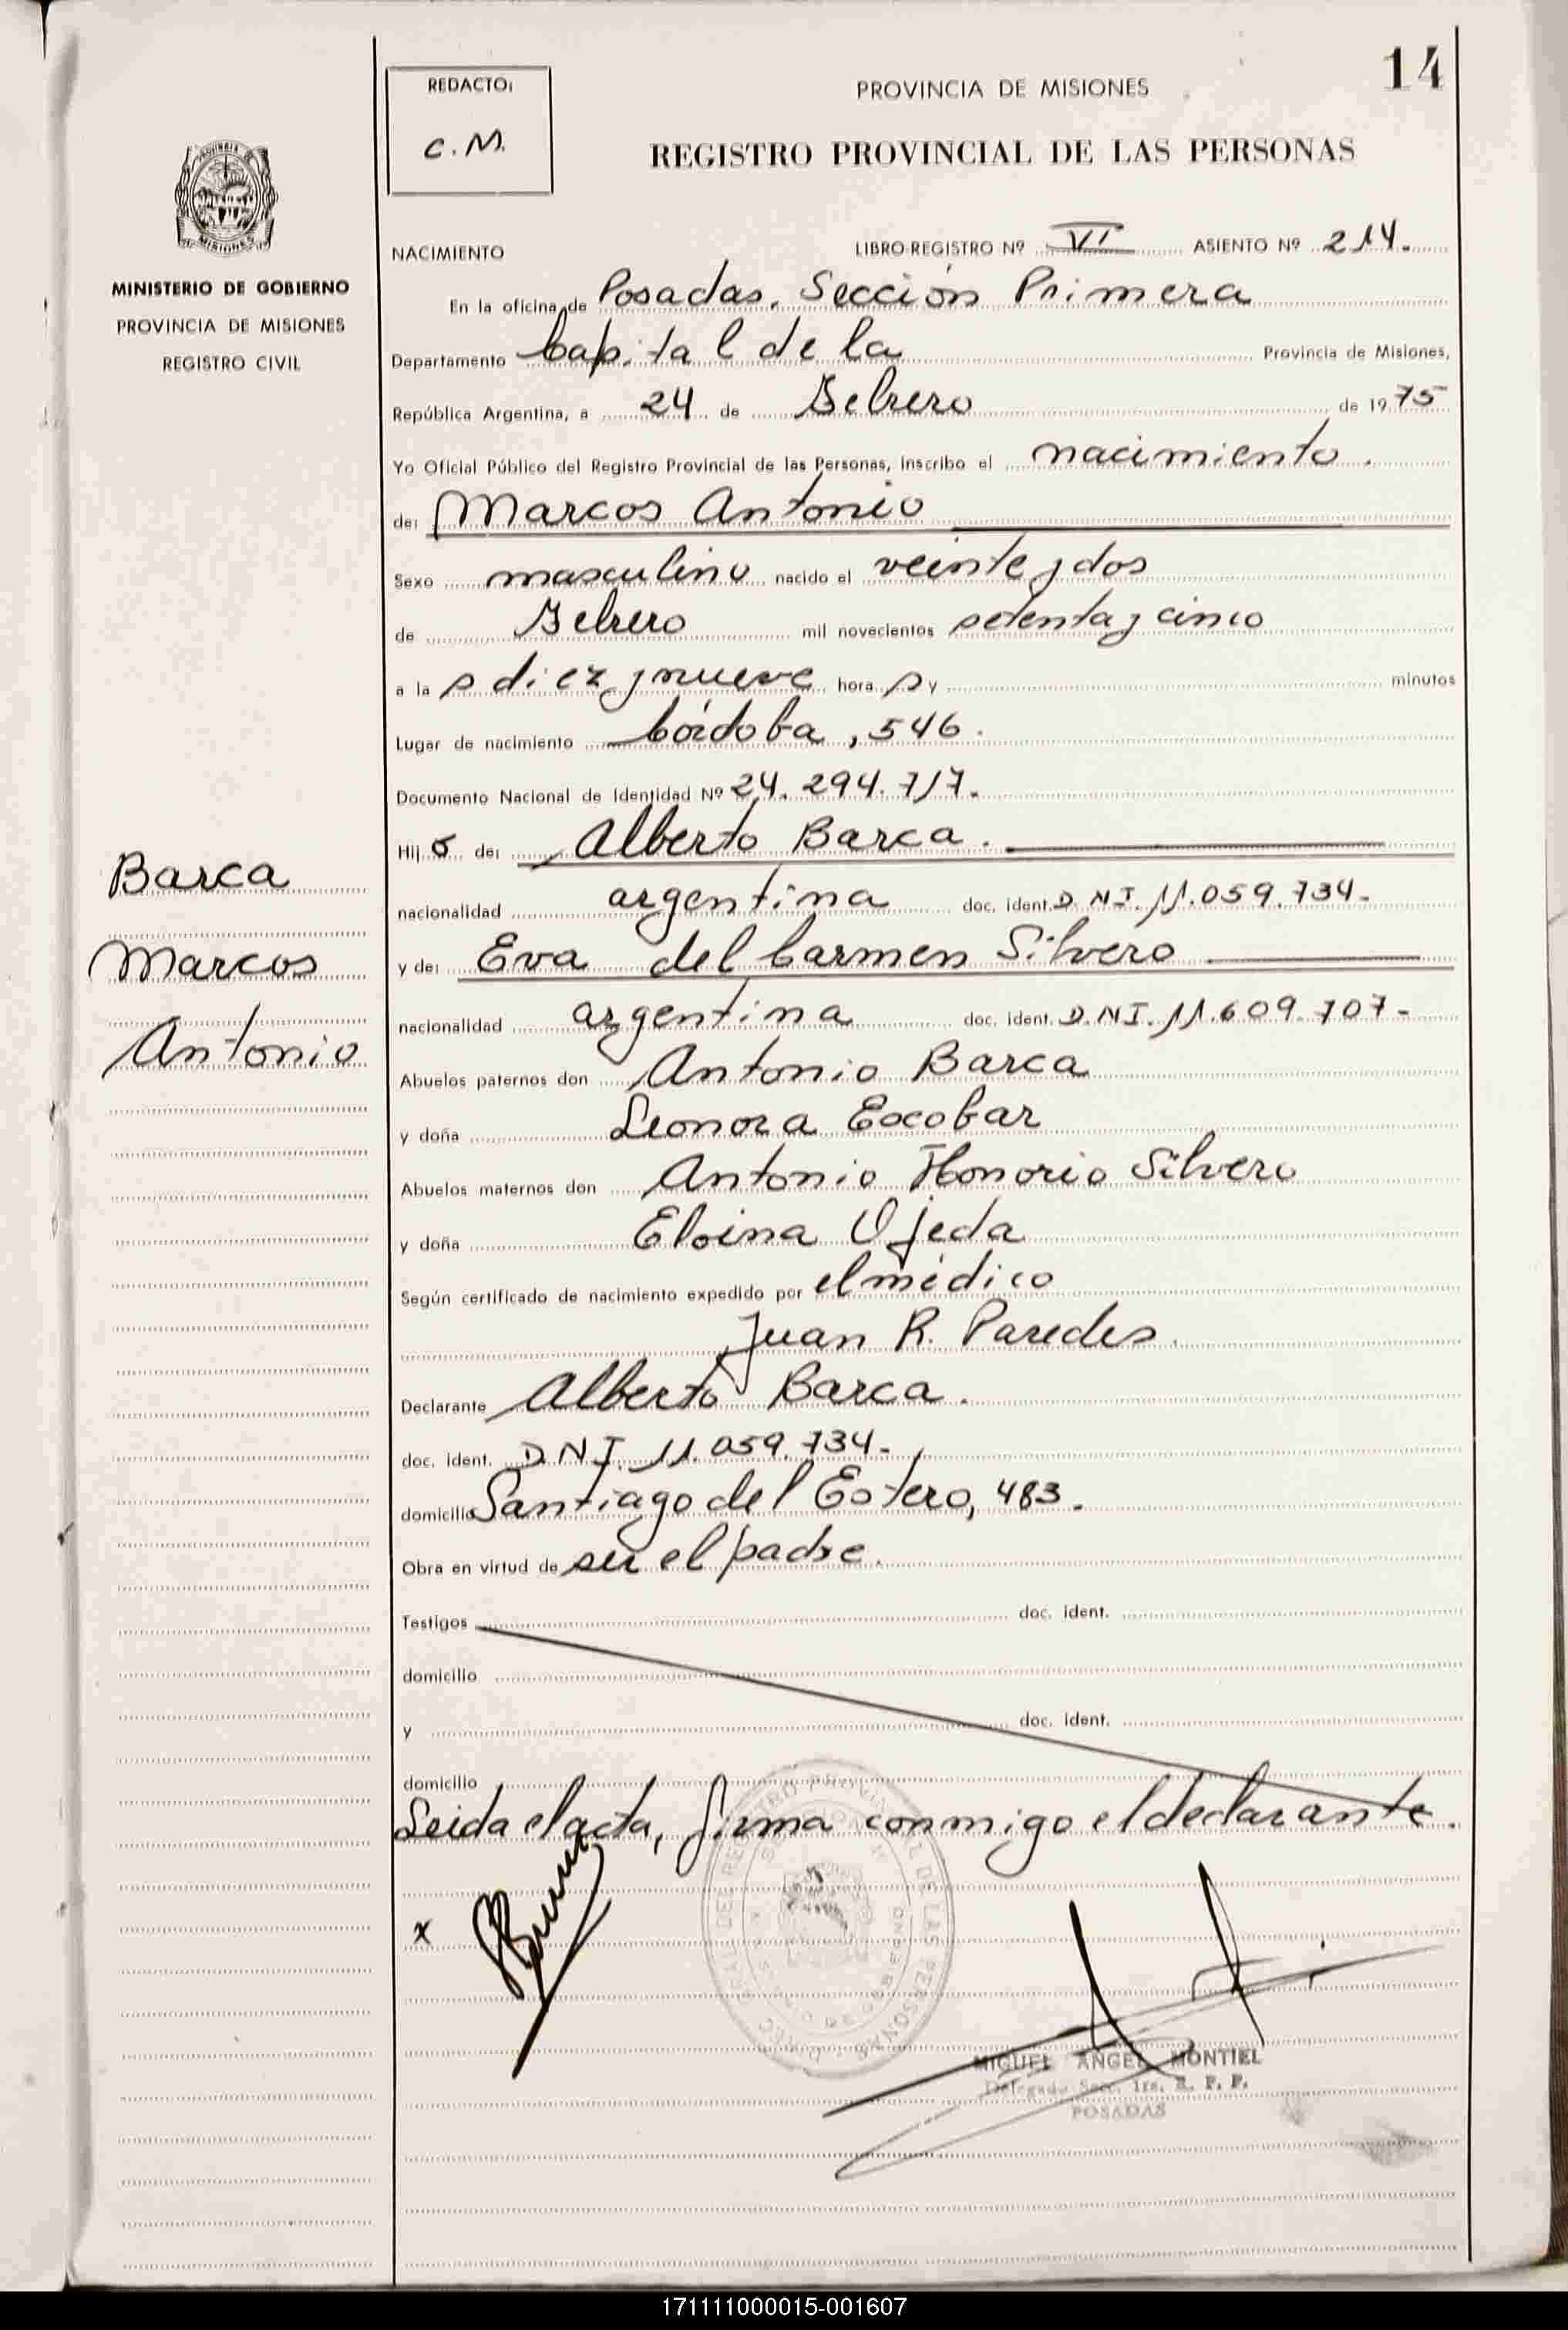 14
REDACTO:
C.M.
PROVINCIA DE MISIONES
REGISTRO PROVINCIAL DE LAS PERSONAS
MISIONES
MINISTERIO DE GOBIERNO
PROVINCIA DE MISIONES
REGISTRO CIVIL
NACIMIENTO LIBRO-REGISTRO Nº VI ASIENTO Nº 214.
En la oficina de Posadas, Sección Primera
Departamento Capital de la Provincia de Misiones,
República Argentina, a 24 de Febrero de 1975
Yo Oficial Público del Registro Provincial de las Personas, inscribo el nacimiento.
de: Marcos Antonio
Sexo masculino nacido el veinte y dos
de Febrero mil novecientos setenta y cinco
a la s diez y nueve hora s y minutos
Lugar de nacimiento Córdoba, 546.
Documento Nacional de Identidad Nº 24.294.717.
Hij o de: Alberto Barca.
nacionalidad argentina doc. ident. D.N.I. 11.059.734-
y de: Eva del Carmen Silvero
nacionalidad argentina doc. ident. D.N.I. 11.609.707-
Abuelos paternos don Antonio Barca
y doña Leonora Escobar
Abuelos maternos don Antonio Honorio Silvero
y doña Eloina Ojeda
Según certificado de nacimiento expedido por el médico
Juan R. Paredes.
Declarante Alberto Barca.
doc. ident. D.N.I. 11.059.734-
domicilio Santiago del Estero, 483.
Obra en virtud de ser el padre.
Testigos doc. ident.
domicilio
y doc. ident.
domicilio
Leida el acta, firma conmigo el declarante.
x
MIGUEL ANGEL MONTIEL
Delegado Secc. 1ra. R. P. P.
POSADAS
Barca
Marcos
Antonio
171111000015-001607